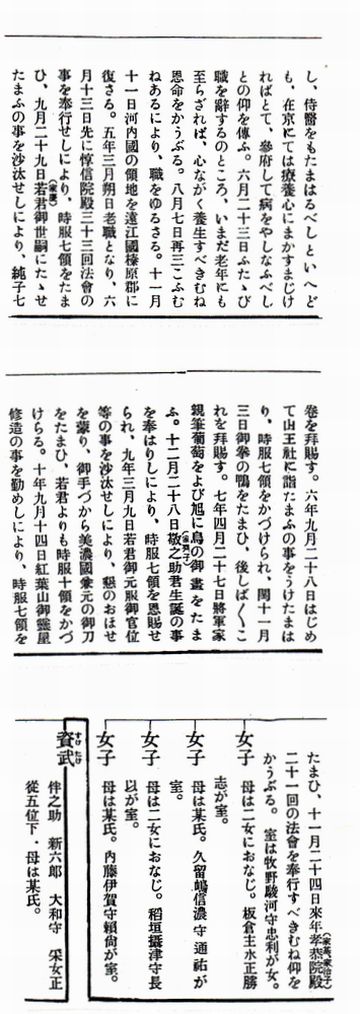 し、侍醫をもたまはるべしといへど
も、在京にては療養心にまかすまじけ
ればとて、參府して病をやしなふべし
との仰を傳ふ。六月二十三日ふたゝび
職を辭するのところ、いまだ老年にも
至らざれば、心ながく養生すべきむね
恩命をかうぶる。八月七日再三こふむ
ねあるにより、職をゆるさる。十一月
十一日河內國の領地を遠江國榛原郡に
復さる。五年三月朔日老職となり、六
月十三日先に惇信院殿三十三回法會の
事を奉行せしにより、時服七領をたま
ひ、九月二十九日若君(家慶)御世嗣にたゝせ
たまふの事を沙汰せしにより、純子七
卷を拜賜す。六年九月二十八日はじめ
て山王社に詣たまふの事をうけたまは
り、時服七領をかづけられ、閏十一月
三日御拳の鴨をたまひ、後しば〱こ
れを拜賜す。七年四月二十七日將軍家
親筆葡萄をよび旭に鳥の御畫をたま
ふ。十二月二十八日敬之助君(家齊子)生誕の事
を奉はりしにより、時服七領を恩賜せ
られ、九年三月九日若君御元服御官位
等の事を沙汰せしにより、懇のおほせ
を蒙り、御手づから美濃國兼元の御刀
をたまひ、若君よりも時服十領をかづ
けらる。十年九月十四日紅葉山御靈屋
修造の事を勤めしにより、時服七領を
たまひ、十一月二十四日來年孝恭院殿(家基、家治子)
二十一回の法會を奉行すべきむね仰を
かうぶる。室は牧野駿河守忠利が女。
女子 母は二女におなじ。板倉主水正勝
志が室。
女子 母は某氏。久留嶋信濃守通祐が
室。
女子 母は二女におなじ。稻垣攝津守長
以が室。
女子 母は某氏。內藤伊賀守賴尙が室。
資武 すけたけ
伴之助 新六郎 大和守 采女正
從五位下・母は某氏。